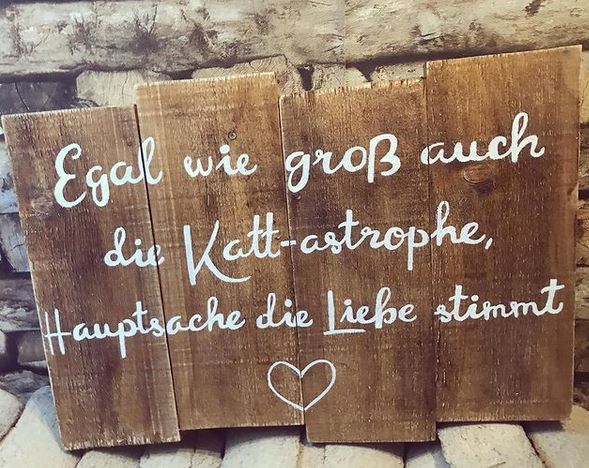 Egal wie groß auch
die Katt-astrophe,
Hauptsache die Liebe stimmt